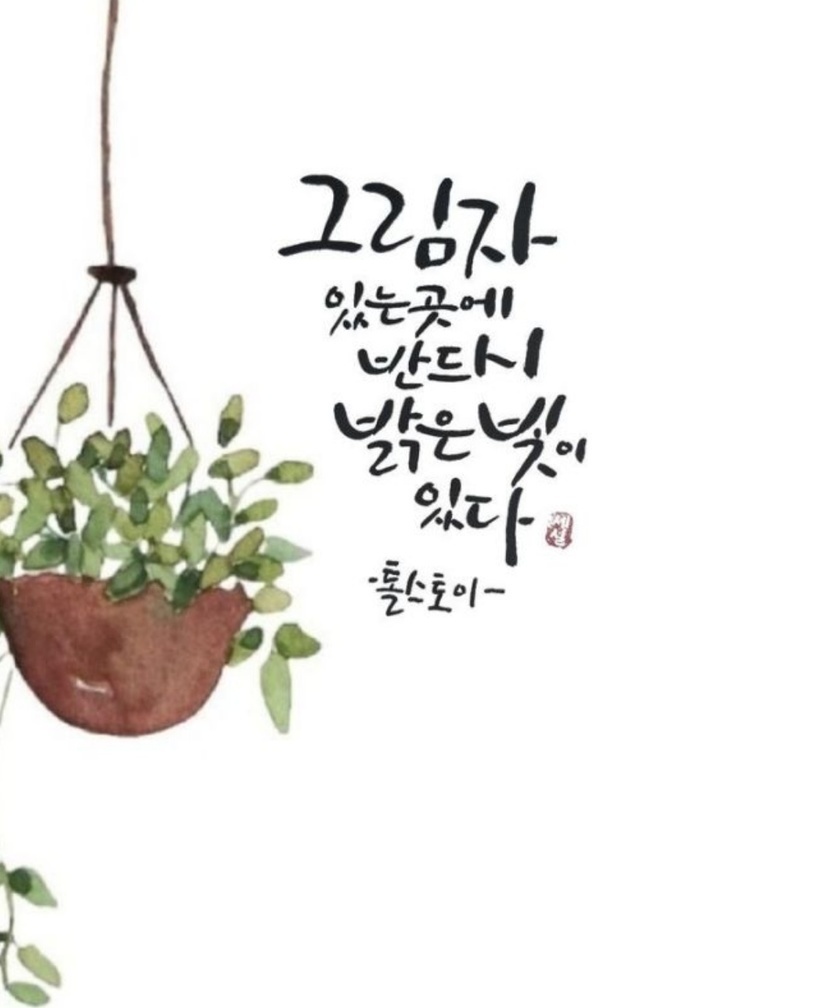 그림자
있는곳에
반드시
밝은 빛이
있다
-톨스토이-